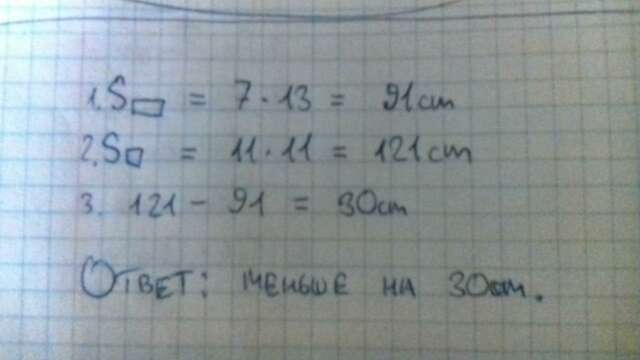 1. S▭ = 7 · 13 = 91cm
2. S□ = 11 · 11 = 121cm
3. 121 - 91 = 30cm
Ответ: меньше на 30cm.